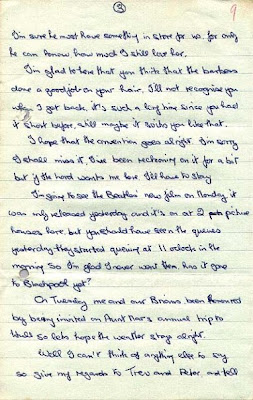 3
9
I'm sure he must have something in store for us, for only
he can know how much I still love her.
I'm glad to here that you think that the barbers
done a good job on your hair, I'll not recognise you
when I get back, it's such a long time since you had
it short before, still maybe it suits you like that.
I hope that the convention goes alright. I'm sorry
I shall miss it, I've been reckoning on it for a bit
but if the Lord wants me here I'll have to stay
I'm going to see the Beatles new film on Monday it
was only released yesterday and it's on at 2 picture
houses here, but you should have seen the queues
yesterday they started queuing at 11 oclock in the
morning so I'm glad I never went then, has it gone
to Blackpool yet?
On Tuesday me and our Brian's been honoured
by being invited on Aunt Mar's annual trip to
so lets hope the weather stays alright.
Well I can't think of anything else to say
so give my regards to Trev and Peter and tell